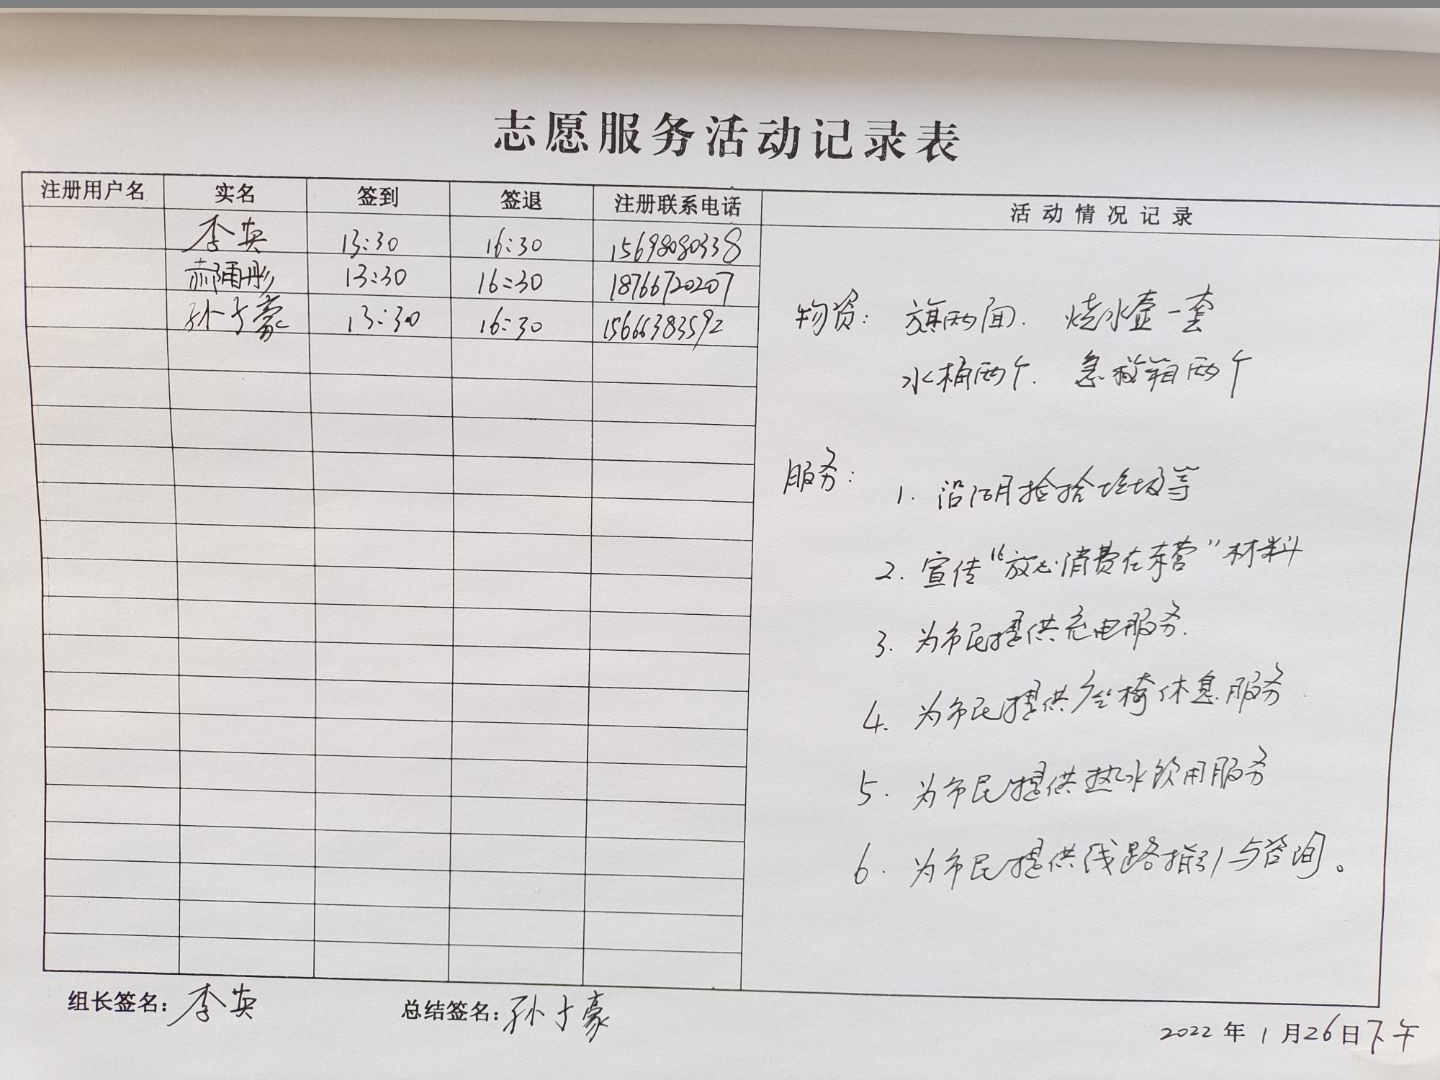 志愿服务活动记录表
注册用户名 实名 签到 签退 注册联系电话 活动情况记录
李英 13:30 16:30 15698080338
郝雨彤 13:30 16:30 18766720207
孙于豪 13:30 16:30 15666383592
物资: 旗两面. 烧水壶一套
水桶两个. 急救箱两个
服务:
1. 沿河捡拾垃圾等
2. 宣传“放心消费在东营”材料
3. 为市民提供充电服务.
4. 为市民提供座椅休息服务
5. 为市民提供热水饮用服务
6. 为市民提供线路指引与咨询。
组长签名: 李英 总结签名: 孙于豪
2022年1月26日下午